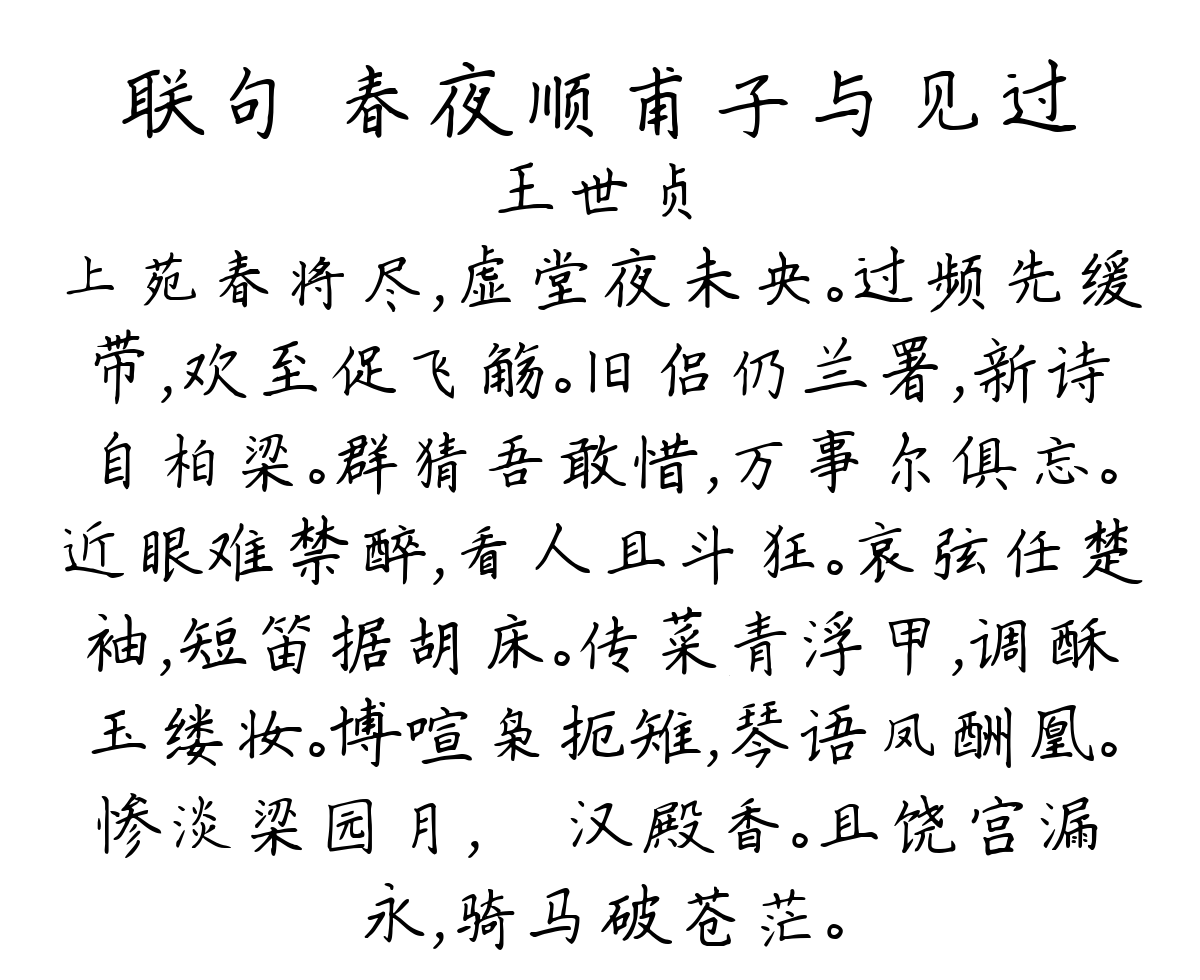 联句 春夜顺甫子与见过
王世贞
上苑春将尽,虚堂夜未央。过频先缓
带,欢至促飞觞。旧侣仍兰署,新诗
自柏梁。群猜吾敢惜,万事尔俱忘。
近眼难禁醉,看人且斗狂。哀弦任楚
袖,短笛据胡床。传菜青浮甲,调酥
玉缕妆。博喧枭扼雉,琴语凤酬凰。
惨淡梁园月, 汉殿香。且饶宫漏
永,骑马破苍茫。